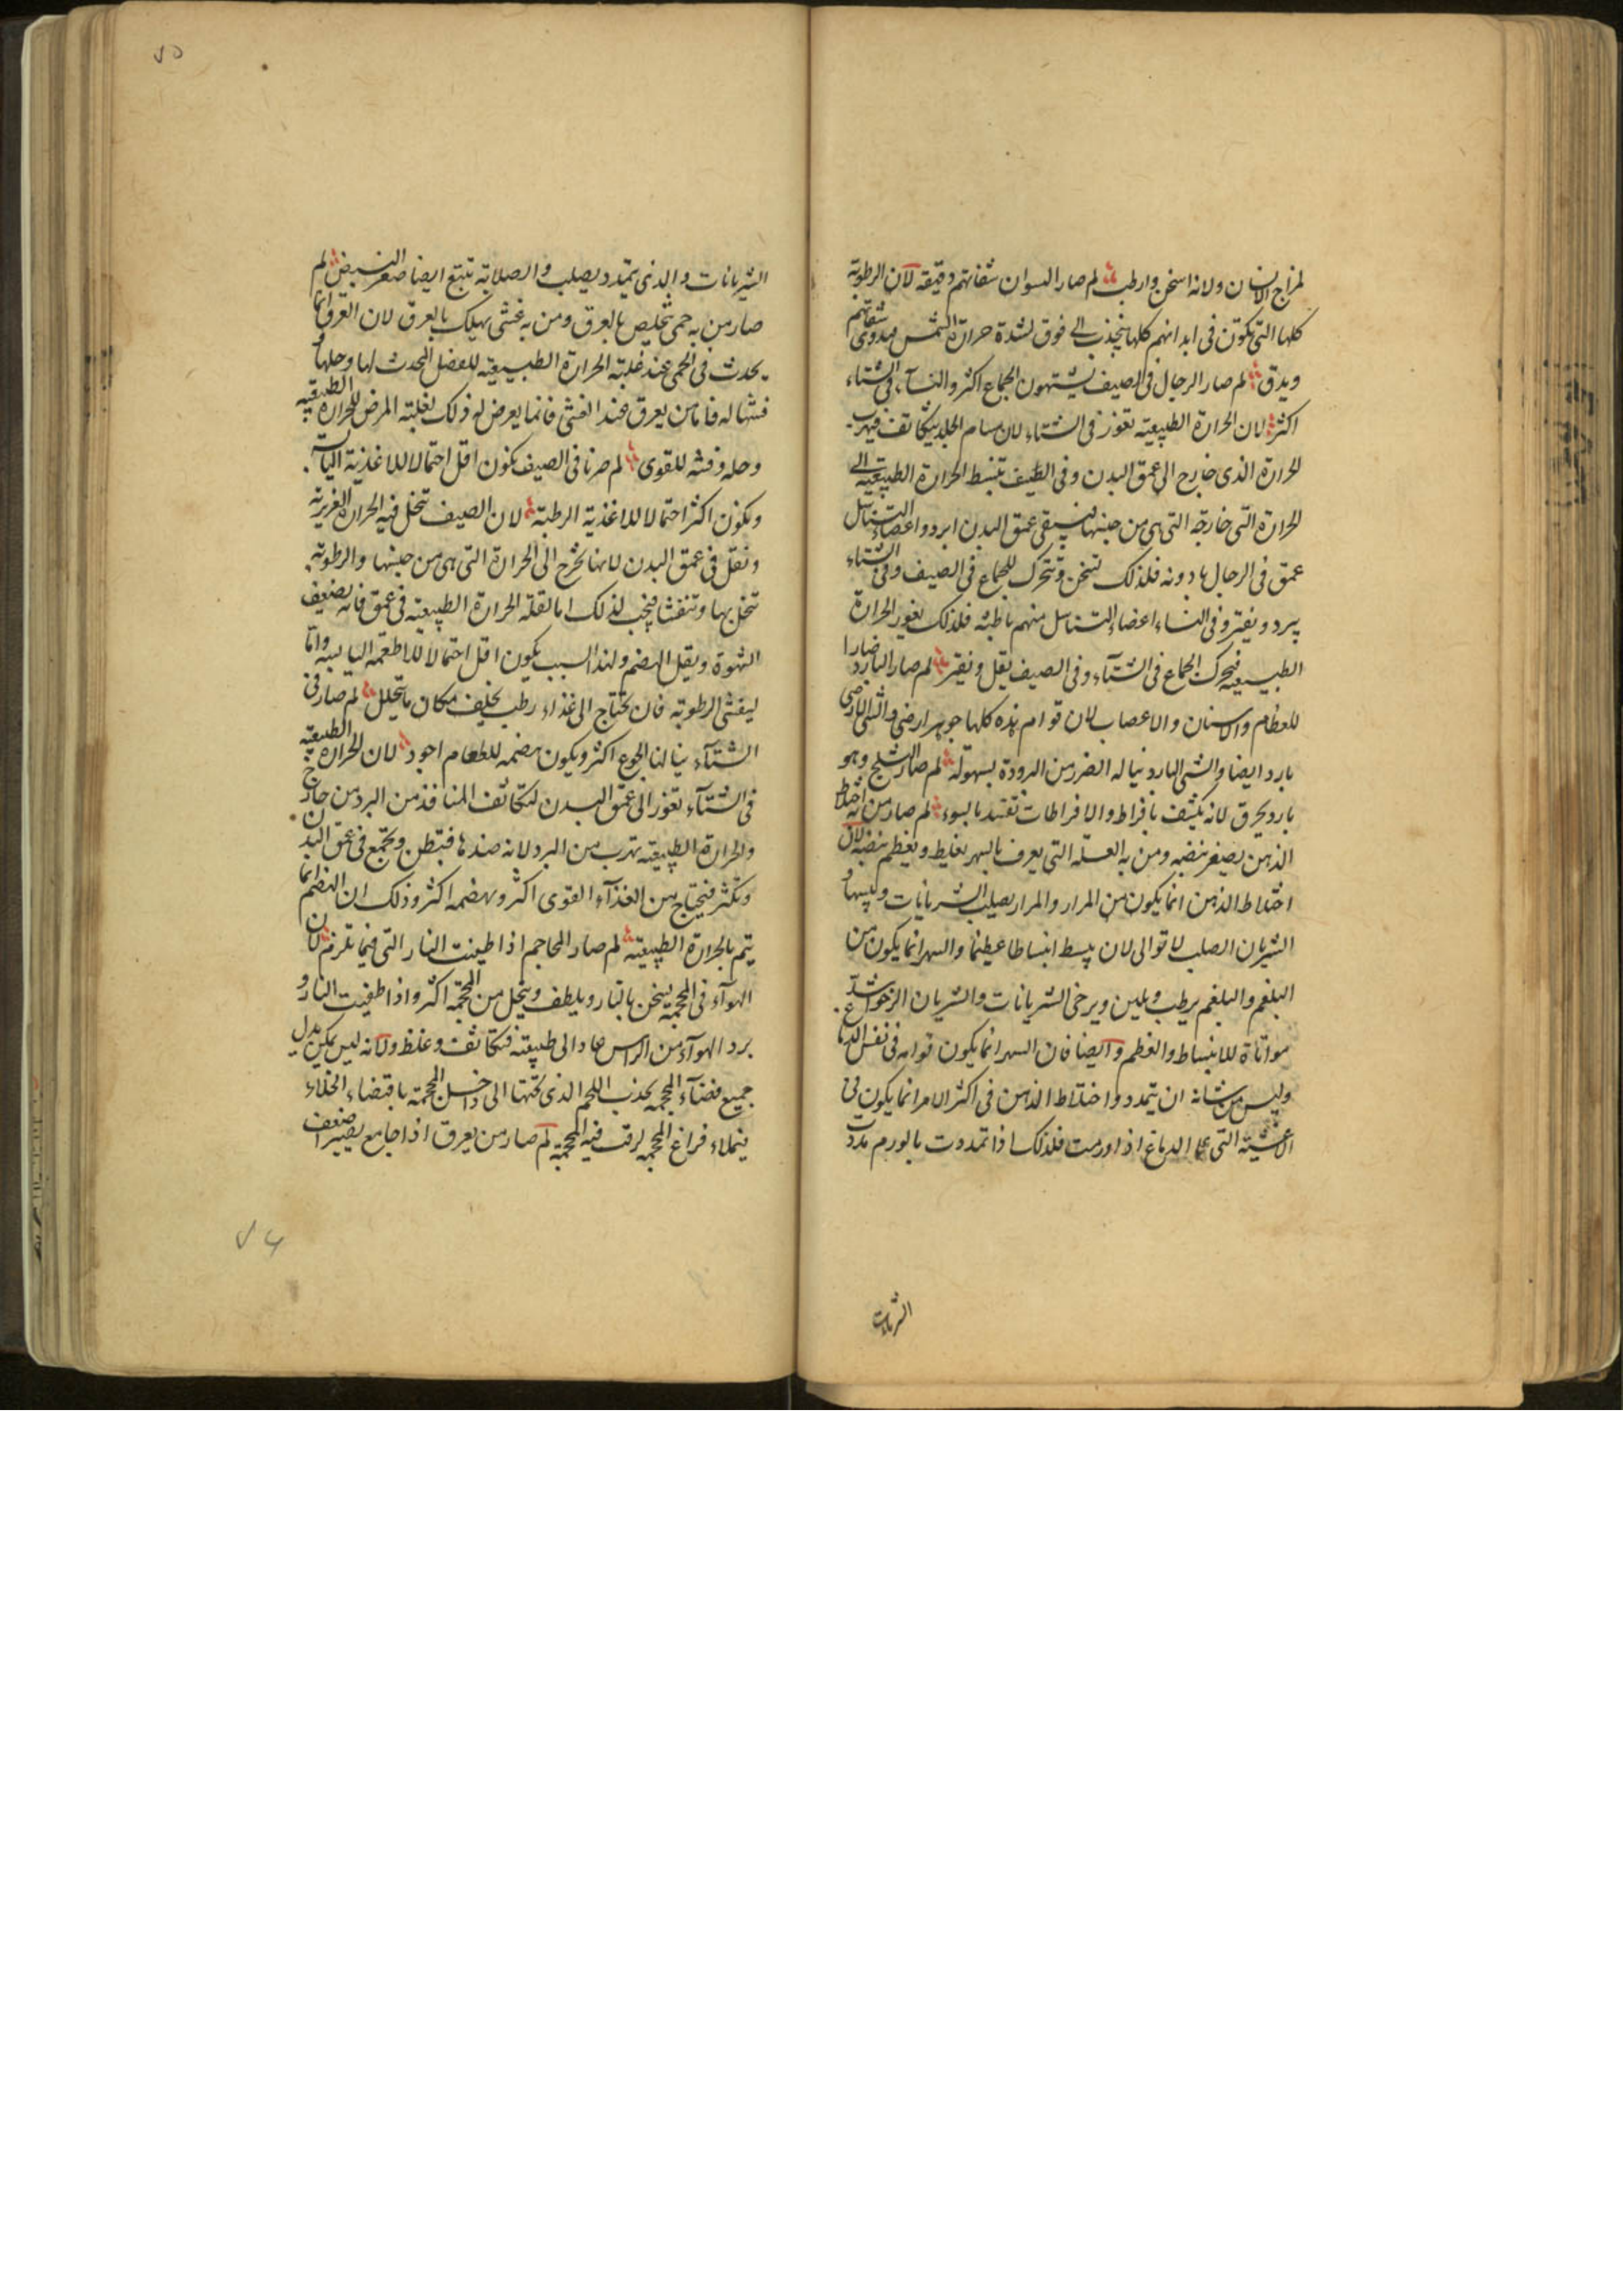 لمزاج الانسان ولانه اسخن وارطب لم صار السودان شفاتهم دقيقة لان الرطوبة
كلها التي تكون في ابدانهم كلها ينجذب الى فوق لشدة حرارة الشمس شفاتهم
ويدق لم صار الرجال في الصيف يشتهون الجماع اكثر والنسآء في الشتاء
اكثر لان الحرارة الطبيعية تغور في الشتاء لان مسام الجلد يتكاثف فيهرب
الحرارة الذي خارج الى عمق البدن وفي الصيف تنبسط الحرارة الطبيعية الى
الحرارة التي خارجة التي هي من جنسها فيبقى عمق البدن ابرد واعضاء التناسل
عمق في الرجال بادونه فلذلك تسخن وتتحرك للجماع في الصيف وفي الشتاء
يبرد ويفتر وفي النساء اعضاء التناسل منهم باطنة فلذلك بغور الحرارة
الطبيعية فيتحرك الجماع في الشتآء وفي الصيف يقل ويفتر لم صار البارد ضارا
للعظام والاسنان والاعصاب لان قوام هذه كلها جوهر ارضي والشي الارضي
بارد ايضا والشي البارد يناله الضرر من البرودة بسهولة لم صار الثلج وهو
بارد يحرق لانه يكثف بافراط والافراطات تفسد بالسوء لم صار من به اختلاط
الذهن يصغر نبضه ومن به العلة التي يعرف بالسهر يغلظ ويعظم نبضه لان
اختلاط الذهن انما يكون من المرار والمرار يصلب الشريانات وييبسها و
الشريان الصلب لا تواتى لان يبسط انبساطا عظيما والسهر انما يكون من
البلغم والبلغم يرطب ويلين ويرخى الشريانات والشريان الرخو اشد
مواتاة للانبساط والعظم وايضا فان السهر انما يكون قوامه في نفس الدماغ
وليس من شانه ان يتمدد واختلاط الذهن في اكثر الامر انما يكون في
الاغشية التي على الدماغ اذا ورمت فلذلك اذا تمددت بالورم مددت
الشريانات
٧٥
الشريانات والذي يتمدد يصلب والصلابة تتبع ايضا صغر النبض لم
صار من به حمى يتخلص بالعرق ومن به غشى يهلك بالعرق لان العرق انما
يحدث في الحمى عند غلبة الحرارة الطبيعية للفضل المحدث لها وحلها و
فشها له فاما من يعرق عند الغشى فانما يعرض له ذلك لغلبة المرض للحرارة الطبيعية
وحله وفشه للقوى لم صرنا في الصيف نكون اقل احتمالا للاغذية اليابسة
ونكون اكثر احتمالا للاغذية الرطبة لان الصيف تتحل فيه الحرارة الغريزية
وتقل في عمق البدن لانها تخرج الى الحرارة التي هي من جنسها والرطوبة
تتحل بها وتنفش فيجب لذلك اما لقلة الحرارة الطبيعية في عمق فانه يضعف
الشهوة ويقل الهضم ولهذا السبب يكون اقل احتمالا للاطعمة اليابسة واما
ليفش الرطوبة فان يحتاج الى غذاء رطب يخلف مكان ما يتحلل لم صار في
الشتآء ينالنا الجوع اكثر ويكون هضمه للطعام اجود لان الحرارة الطبيعية
في الشتآء تغور الى عمق البدن لتكاثف المنافذ من البرد من خارج
والحرارة الطبيعية تهرب من البرد لانه ضدها فتبطن وتجمع في عمق البدن
وتكثر فيحتاج من الغذآء القوى اكثر ويهضمه اكثر وذلك ان الهضم انما
يتم بالحرارة الطبيعية لم صار المحاجم اذا طفئت النار التي فيها تلزم لان
الهوآء في المحجمة يسخن بالنار ويلطف ويتحل من المحجمة اكثر واذا طفيت النار و
برد الهوآء من الراس عاد الى طبيعته فتكاثف وغلظ ولانه ليس يمكن يدل
جميع فضآء المحجمة يجذب اللحم الذي تحتها الى داخل المحجمة باقتضاء الخلاء
فيملاء فراغ المحجمة لرقت فيه المحجمة لم صار من يعرق اذا جامع يصير اضعف
٧٤